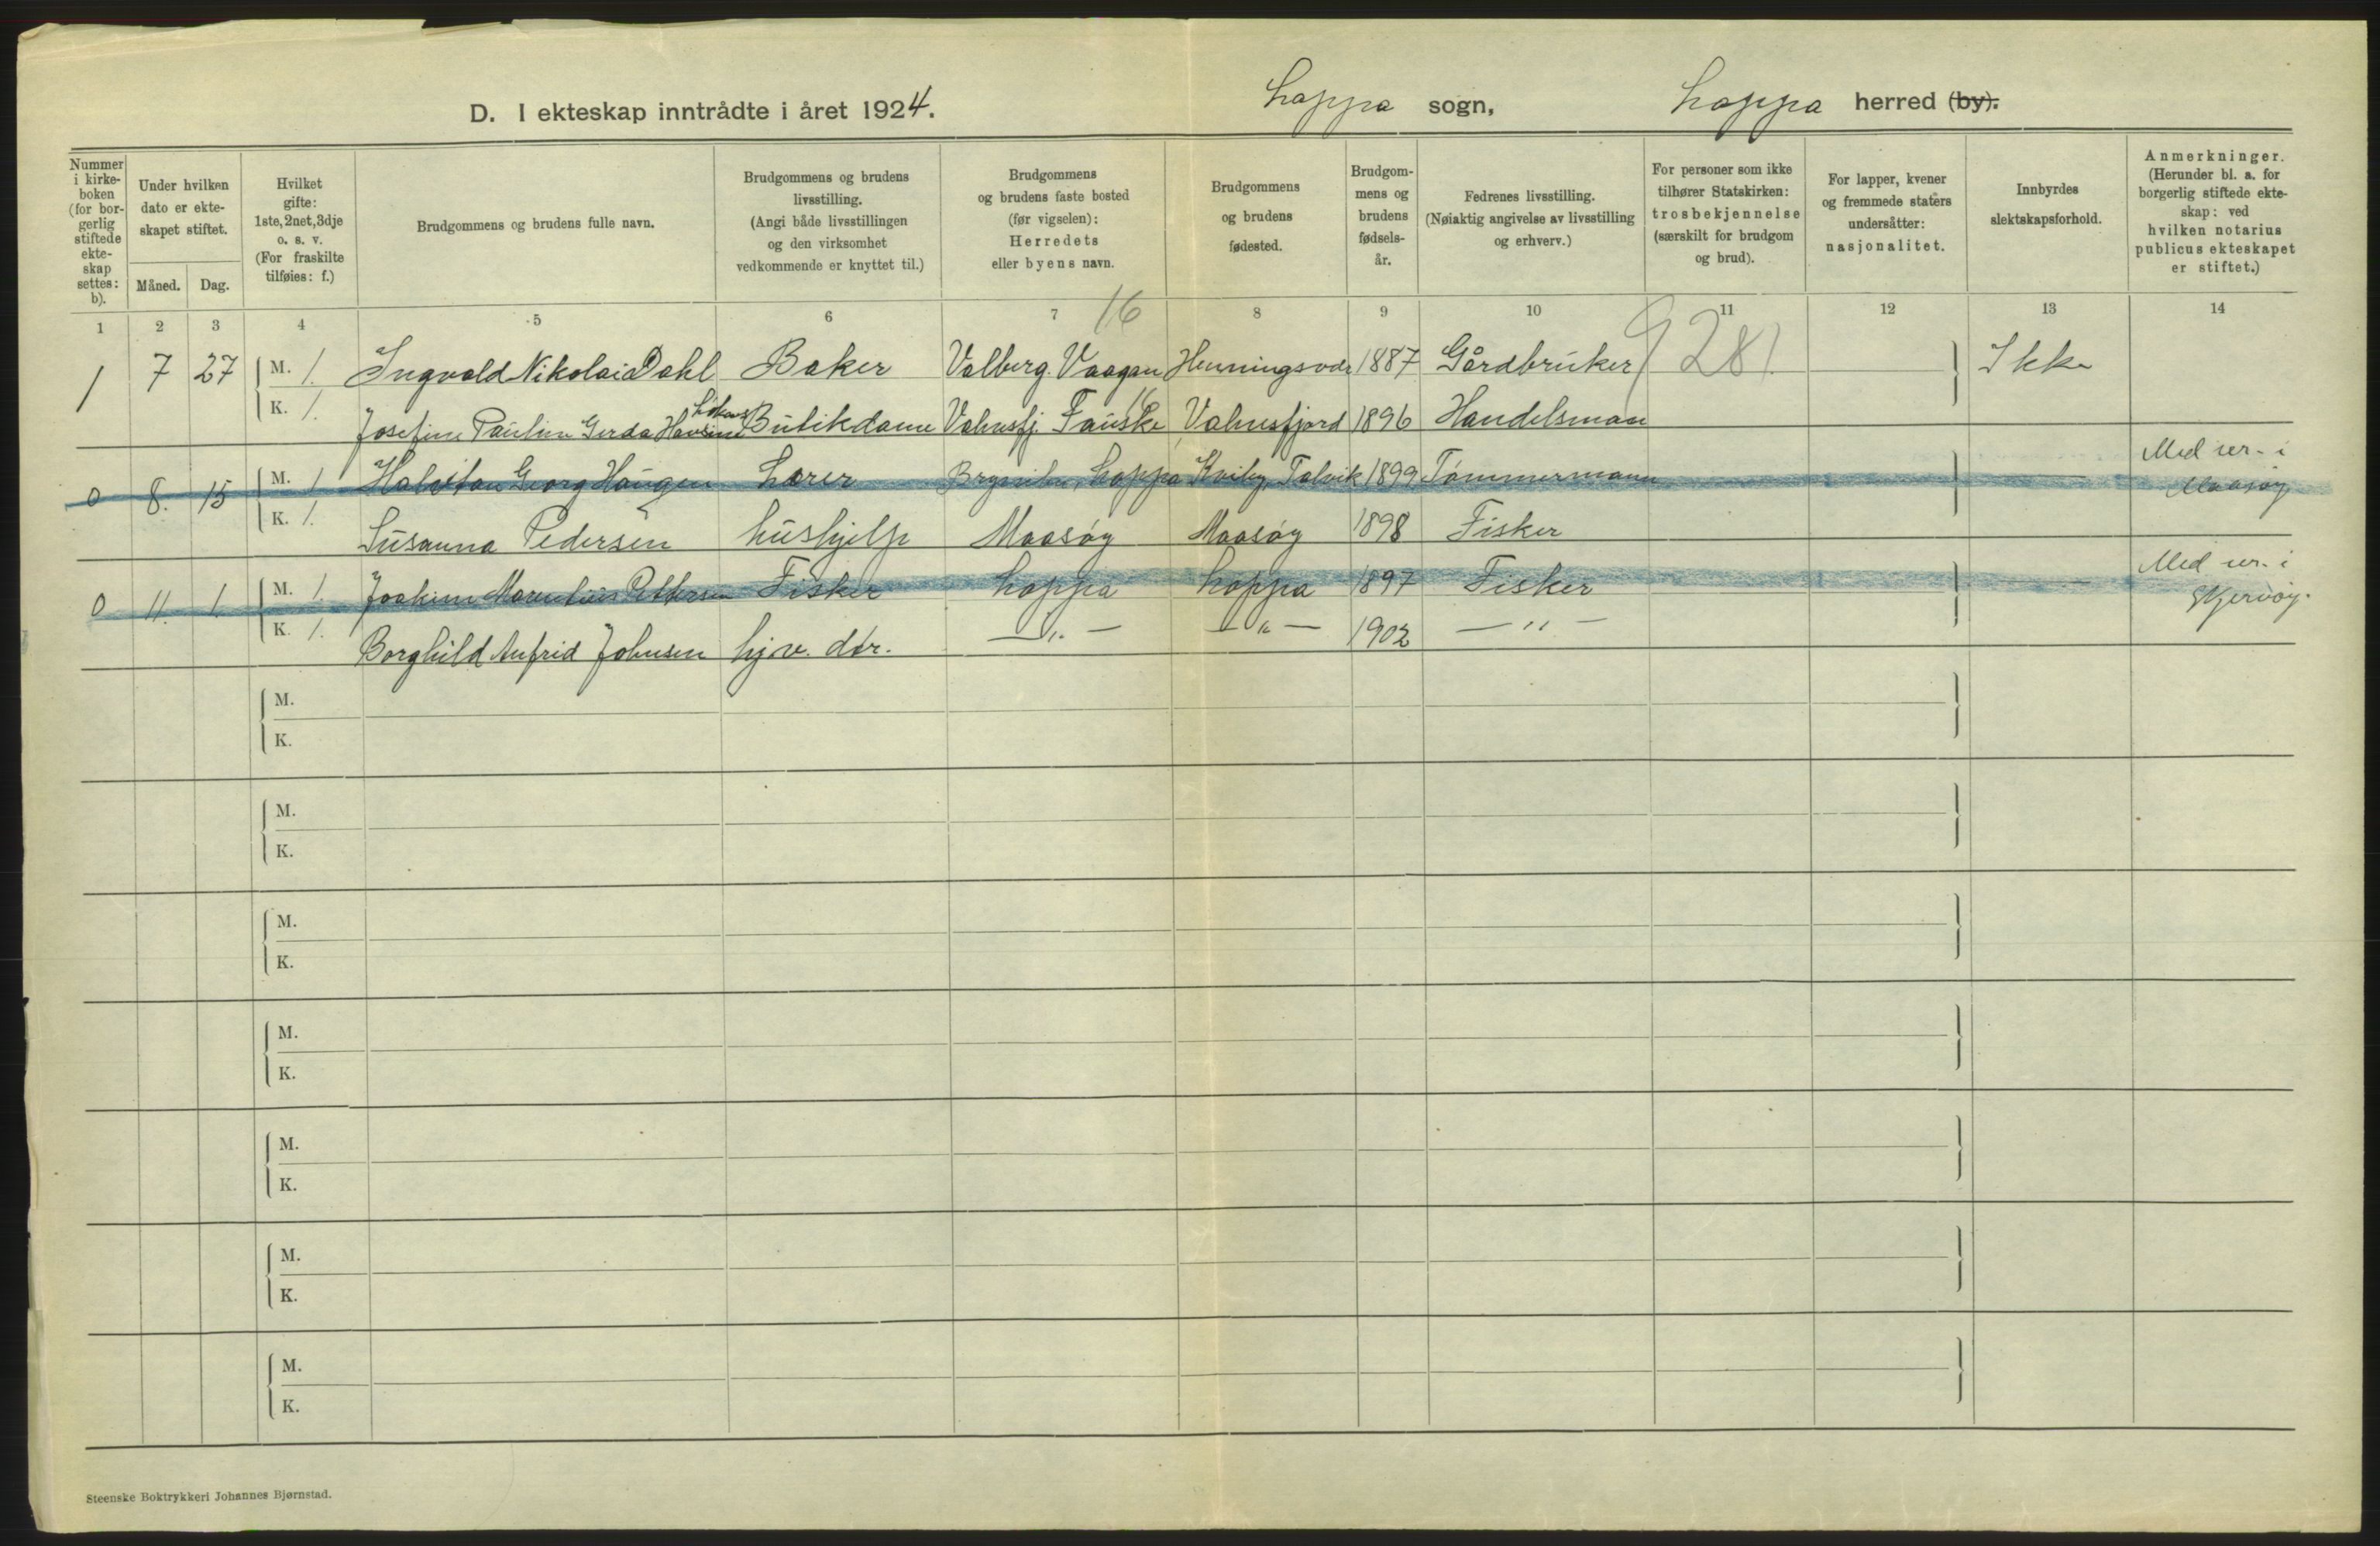 D. I ekteskap inntrådte i året 1924. Loppa sogn, Loppa herred (by).
Nummer i kirke-boken (for bor-gerlig stiftede ekte-skap settes: b).
Under hvilken dato er ekte-skapet stiftet.
Måned. Dag.
Hvilket gifte: 1ste, 2net, 3dje o. s. v. (For fraskilte tilføies: f.)
Brudgommens og brudens fulle navn.
Brudgommens og brudens livsstilling. (Angi både livsstillingen og den virksomhet vedkommende er knyttet til.)
Brudgommens og brudens faste bosted (før vigselen): Herredets eller byens navn.
Brudgommens og brudens fødested.
Brudgom-mens og brudens fødsels-år.
Fedrenes livsstilling. (Nøiaktig angivelse av livsstilling og erhverv.)
For personer som ikke tilhører Statskirken: trosbekjennelse (særskilt for brudgom og brud).
For lapper, kvener og fremmede staters undersåtter: nasjonalitet.
Innbyrdes slektskapsforhold.
Anmerkninger. (Herunder bl. a. for borgerlig stiftede ekte-skap: ved hvilken notarius publicus ekteskapet er stiftet.)
1 2 3 4 5 6 7 8 9 10 11 12 13 14
16
1 7 27 M. 1. Ingvald Nikolai Dahl Baker Valberg Vaagan Henningsvær 1887 Gårdbruker 9281 Ikke
K. 1. Josefine Pauline Gerda Butikdame Valnesfj. Fauske Valnesfjord 1896 Handelsman
16
0 8. 15 M. 1 Halvdan Georg Haugen Lærer Loppa Kviby, Talvik 1899 Tømmermann Med ver. i Maasøy
K. 1. Susanna Pedersen hushjelp Maasøy Maasøy 1898 Fisker
0 11. 1. M. 1. Joakim Pettersen Fisker Loppa Loppa 1897 Fisker Med ver. i Skjervøy.
K. 1. Borghild Anfrid Johnsen hjv. dtr. — " — — " — 1902 — " —
M.
K.
M.
K.
M.
K.
M.
K.
M.
K.
M.
K.
M.
K.
Steenske Boktrykkeri Johannes Bjørnstad.